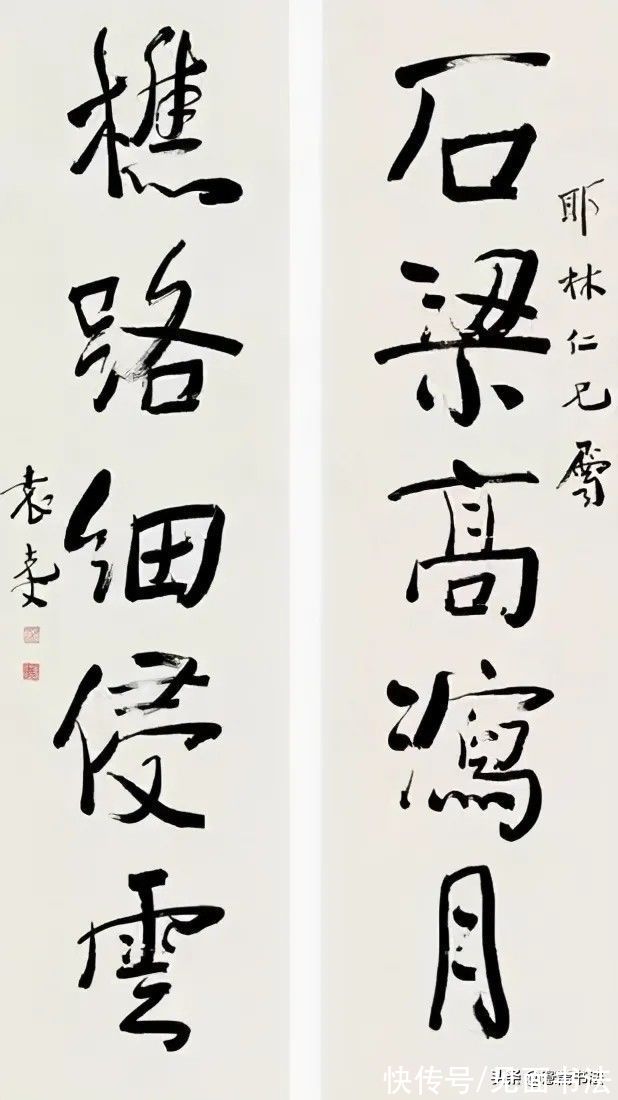 耶林仁兄屬
石梁高瀉月
樵路細侵雲
袁克文
快传号/见面书法